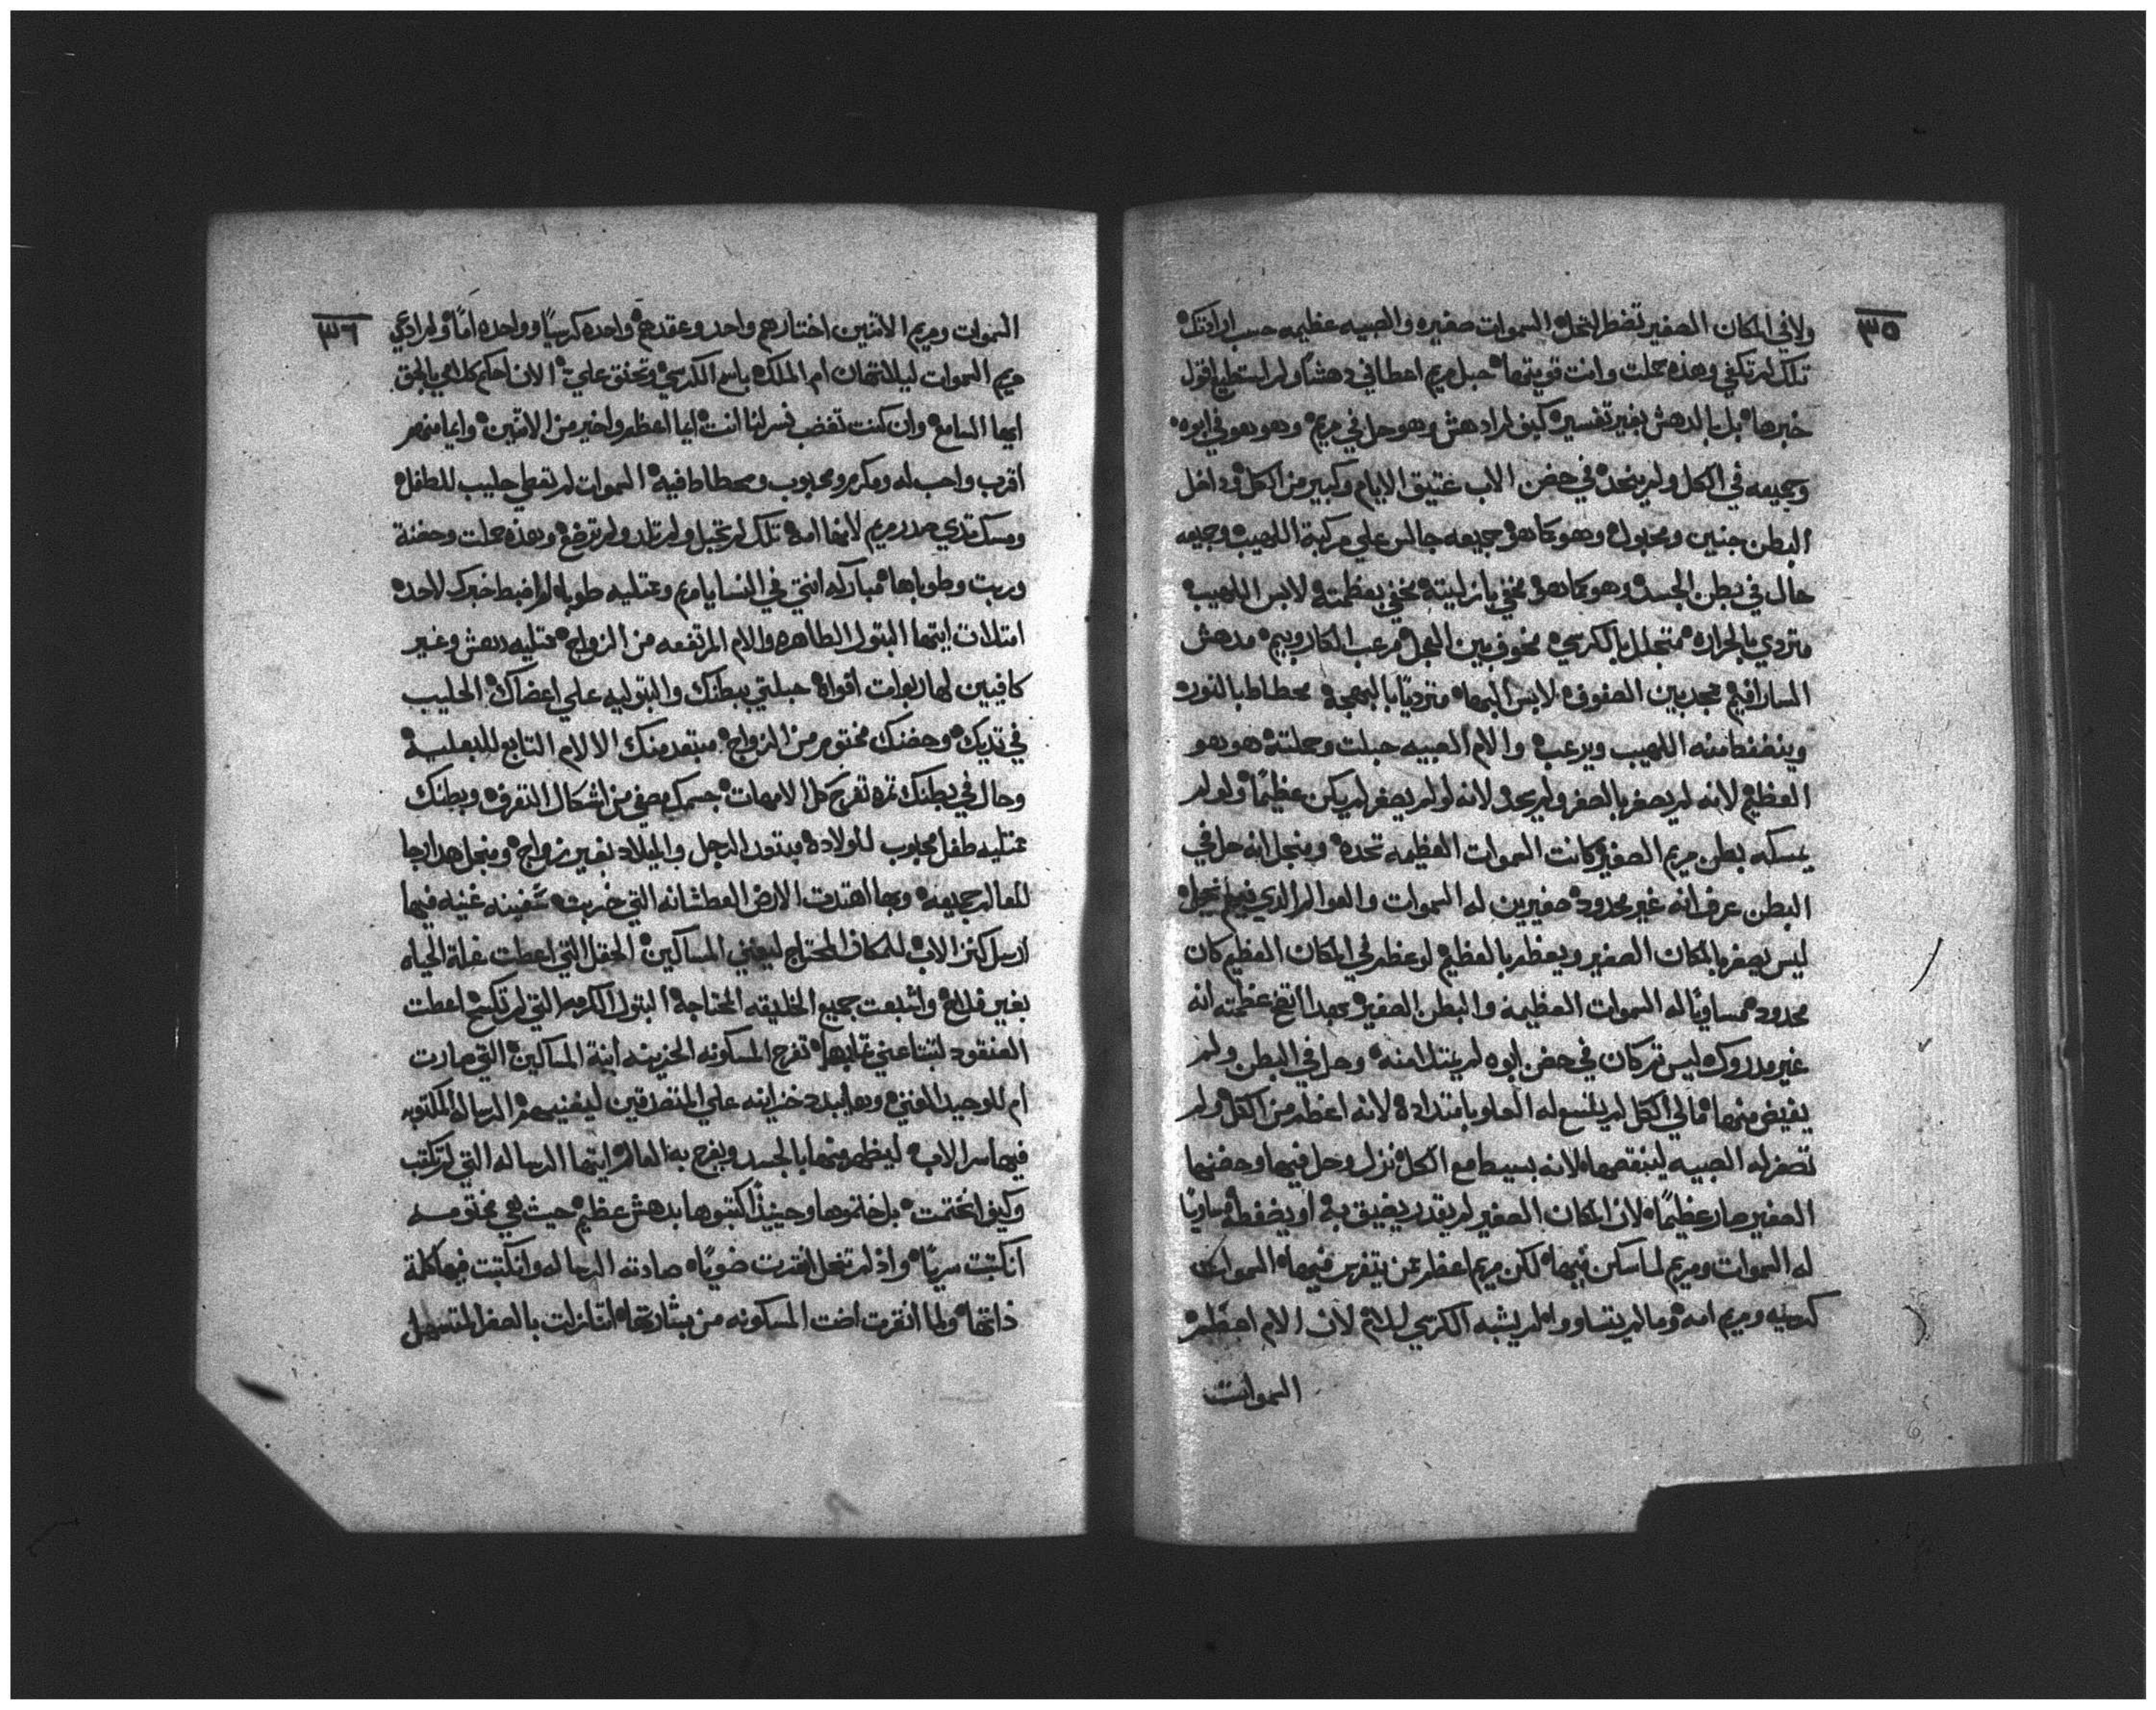 ٣٥
ولا في المكان الصغير تضطر لتحل السموات صغيره والصبيه عظيمه حسب ارادتك
تلك لم تكفي وهذه حملت وانت قويتها حبل مريم اعطاني دهشاً ولم استطيع اقول
خبرها بل بالدهش بغير تفسير كيف لم ادهش وهو حل في مريم وهو هو في ابوه
وجميعه في الكل ولم ينحد في حضن الاب عتيق الايام وكبير من الكل وداخل
البطن جنين ومحبول وهو كاهو جميعه جالس علي مركبة اللهيب وجميعه
حال في بطن الجسد وهو كاهو مخفي بازليته مخفي بعظمته لابس اللهيب
متردي بالحراره متجلل بالكرسي مخوف بين العجل مرعب الكاروبيم مدهش
السارافيم مجد بين الصفوف لابس البها متردياً بالبهجه محطاط بالنور
وينضغط منه اللهيب ويرعب والام الصبيه حبلت وحملته هو هو
العظيم لانه لم يصغر بالصغر ولم يحد لانه لو لم يصغر لم يكن عظيماً ولو لم
يمسكه بطن مريم الصغير كانت السموات العظيمه تحده ومنجل انه حل في
البطن عرف انه غير محدود صغيرين له السموات والعوالم الذي فيهم يحل
ليس يصغر بالمكان الصغير ويعظم بالعظيم لو عظم في المكان العظيم كان
محدود مساوياً له السموات العظيمه والبطن الصغير بهذا اتضح عظمته انه
غير مدروك ليس تم كان في حضن ابوه لم يمتلا منه وحل في البطن ولم
يفيض منها مالي الكل لم يلتسع له العلو بامتداده لانه اعظم من الكل ولم
تصغر له الصبيه لينقصها لانه بسيط مع الكل نزل وحل فيها وحضنها
الصغير صار عظيماً لان المكان الصغير لم يقدر يضيق به او يضغطه مساوياً
له السموات ومريم لما سكن فيها لكن مريم اعظم لمن يتفرس فيها السموات
كرسيه ومريم امه وما لم يتساووا لم يشبه الكرسي للام لان الام اعظم
السموات
٣٦
السموات ومريم الاثنين اختارهم واحد وعقدهم واحده كرسياً وواحده اماً ولم ادعي
مريم السموات ليلا تهان ام الملك باسم الكرسي وتحنق علي الان احكم كلامي بالحق
ايها السامع وان كنت تغضب فسر لنا انت ايما اعظم واخير من الاثنين وايما منهم
اقرب واحب له ومكرم ومحبوب ومحطاط فيه السموات لم تعطي حليب للطفل
ومسك تدي صدر مريم لانها امه تلك لم تحبل ولم تلد ولم ترضع وهذه حملت وحضنة
وربت وطوباها مباركه انتي في النسا يا مريم وممتليه طوبا لم اضبط خبرك لاحده
امتلات ايتها البتول الطاهره والام المرتفعه من الزواج ممتليه دهش وغير
كافيين لها ربوات افواه حبلتي ببطنك والبتوليه علي اعضاك الحليب
في تديك وحضنك مختوم من الزواج مبتعد منك الالام التابع للبعليه
وحال في بطنك تمره تفرح كل الامهات جسمك مصفي من اشكال التعرف وبطنك
ممتليه طفل محبوب للولاده بدون الرجل والميلاد بغير زواج ومنجل هذا رجا
للعالم جميعه وبها اهتدت الارض العطشانه التي خربت سفينه غنيه فيها
ارسل كنز الاب للمكان المحتاج ليغني المساكين الحقل التي اعطت غلة الحياه
بغير فلاح واشبعت جميع الخليقه المحتاجه البتول الكرمه التي لم تكسح اعطت
العنقود لتبتاعني عنابها تفرح المسكونه الحزينه ابنة المساكين التي صارت
ام للوحيد الغني وها يبدد خزاينه علي المتصدقين ليغنيهم الرساله المكتوبه
فيها سر الاب ليظهر منها بالجسد ويفرح به العالم ايتها الرساله التي لم تكتب
وكيف انختمت بل اختموها وحينيذٍ اكتبوها بدهش عظيم حيث هي مختومه
انكتبت سرياً واذ لم تنحل انقرت ضوياً صادته الرساله وانكتبت فيها كلمة
ذاتها ولما انقرت اضت المسكونه من بشارتها اتنازلت بالصغر المتسهل